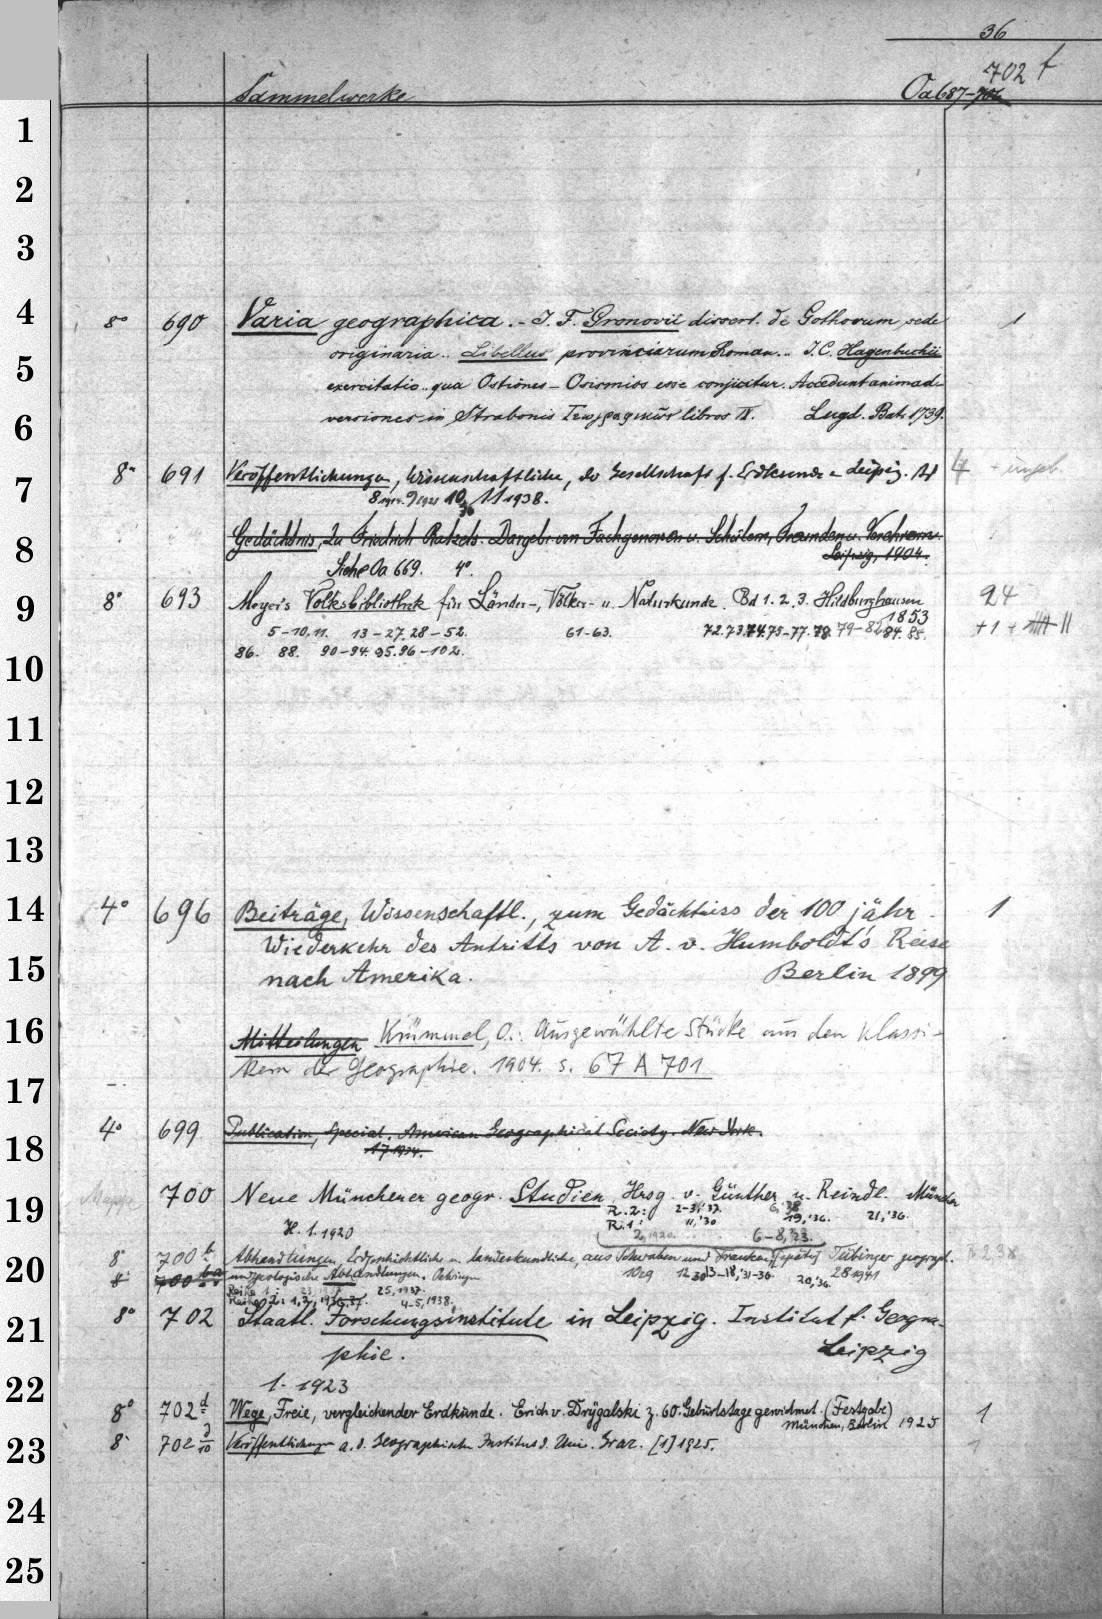 36
702 f
Sammelwerke Oa 687-702
1
2
3
4
8° 690 Varia geographica.- I. F. Gronovii dissert. de Gothorum sede 1
originaria.. Libellus provinciarum Roman... I. C. Hagenbuchii
5
exercitatio.. qua Ostiones - Osismios esse conjicitur. Accedunt animad-
6
versiones in Strabonis libros IX. Lugd. Bat. 1739.
7
8° 691 Veröffentlichungen, Wissenschaftliche, der Gesellschaft f. Erdkunde z. Leipzig. Bd 4 + ungeb.
8 1914. 9 1921 10, 11 1938.
8
Gedächtnis, Zu Friedrich Ratzels. Dargebr. von Fachgenossen u. Schülern, Freunden u. Verehrern.
Leipzig, 1904.
Siehe Oa 669. 4°.
9
8° 693 Meyer's Volksbibliothek für Länder-, Völker- u. Naturkunde. Bd 1. 2. 3. Hildburghausen 24
1853
5-10, 11. 13-27. 28-52. 61-63. 72. 73. 74. 75-77. 78. 79-82 84. 85. +1 +
86. 88. 90-94. 95. 96-102.
10
11
12
13
14
4° 696 Beiträge, Wissenschaftl., zum Gedächtniss der 100 jähr. 1
Wiederkehr des Antritts von A. v. Humboldt's Reise
15
nach Amerika. Berlin 1899
16
Mitteilungen Krümmel, O.: Ausgewählte Stücke aus den Klassi-
kern der Geographie. 1904. s. 67 A 701
17
4° 699 Publication, Special. American Geographical Society. New York.
18
17 1934.
19
Mappe 700 Neue Münchener geogr. Studien Hrsg. v. Günther u. Reindl. München
R. 2: 2-3, '37. 6, '38
R. 1: 11, '30 19, '36. 21, '36.
H. 1. 1920 2, 1920. 6-8, '23.
20
8° 700 b Abhandlungen Erdgeschichtliche u. landeskundliche, aus Schwaben und Franken, [später] Tübinger geograph.
8° 700 und geologische Abhandlungen. Oehringen
1929 12 30 13-18, '31-36. 20, '36. 28 1941
Reihe 1: 25, 1937.
Reihe 2: 1, 2, 1936, 37. 4-5, 1938.
21
8° 702 Staatl. Forschungsinstitute in Leipzig. Institut f. Geogra-
phie. Leipzig
22
1. 1923
8° 702 d Wege, Freie, vergleichender Erdkunde. Erich v. Drygalski z. 60. Geburtstage gewidmet. (Festgabe) 1
München, Berlin 1925
23
8° 702 d/10 Veröffentlichungen a. d. Geographischen Institut d. Univ. Graz. [1] 1925. 1
24
25